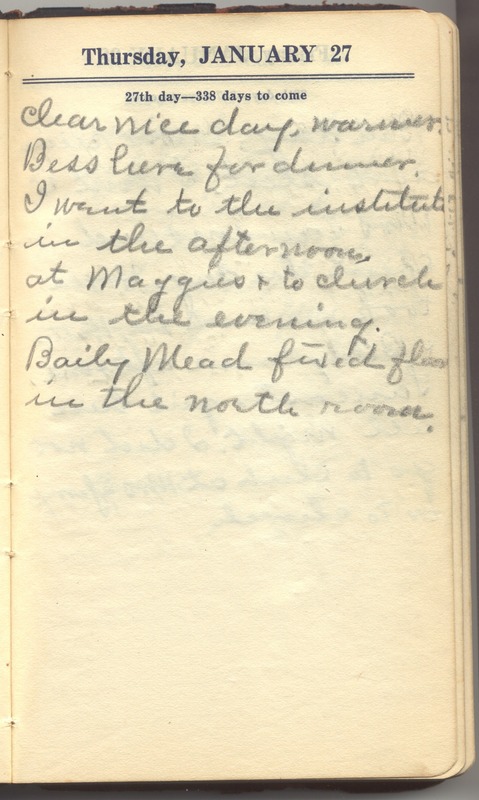 Thursday, JANUARY 27
27th day—338 days to come
Clear nice day, warmer.
Bess here for dinner.
I went to the institute
in the afternoon,
at Maggies & to church
in the evening.
Baily Mead fixed floor
in the north room.